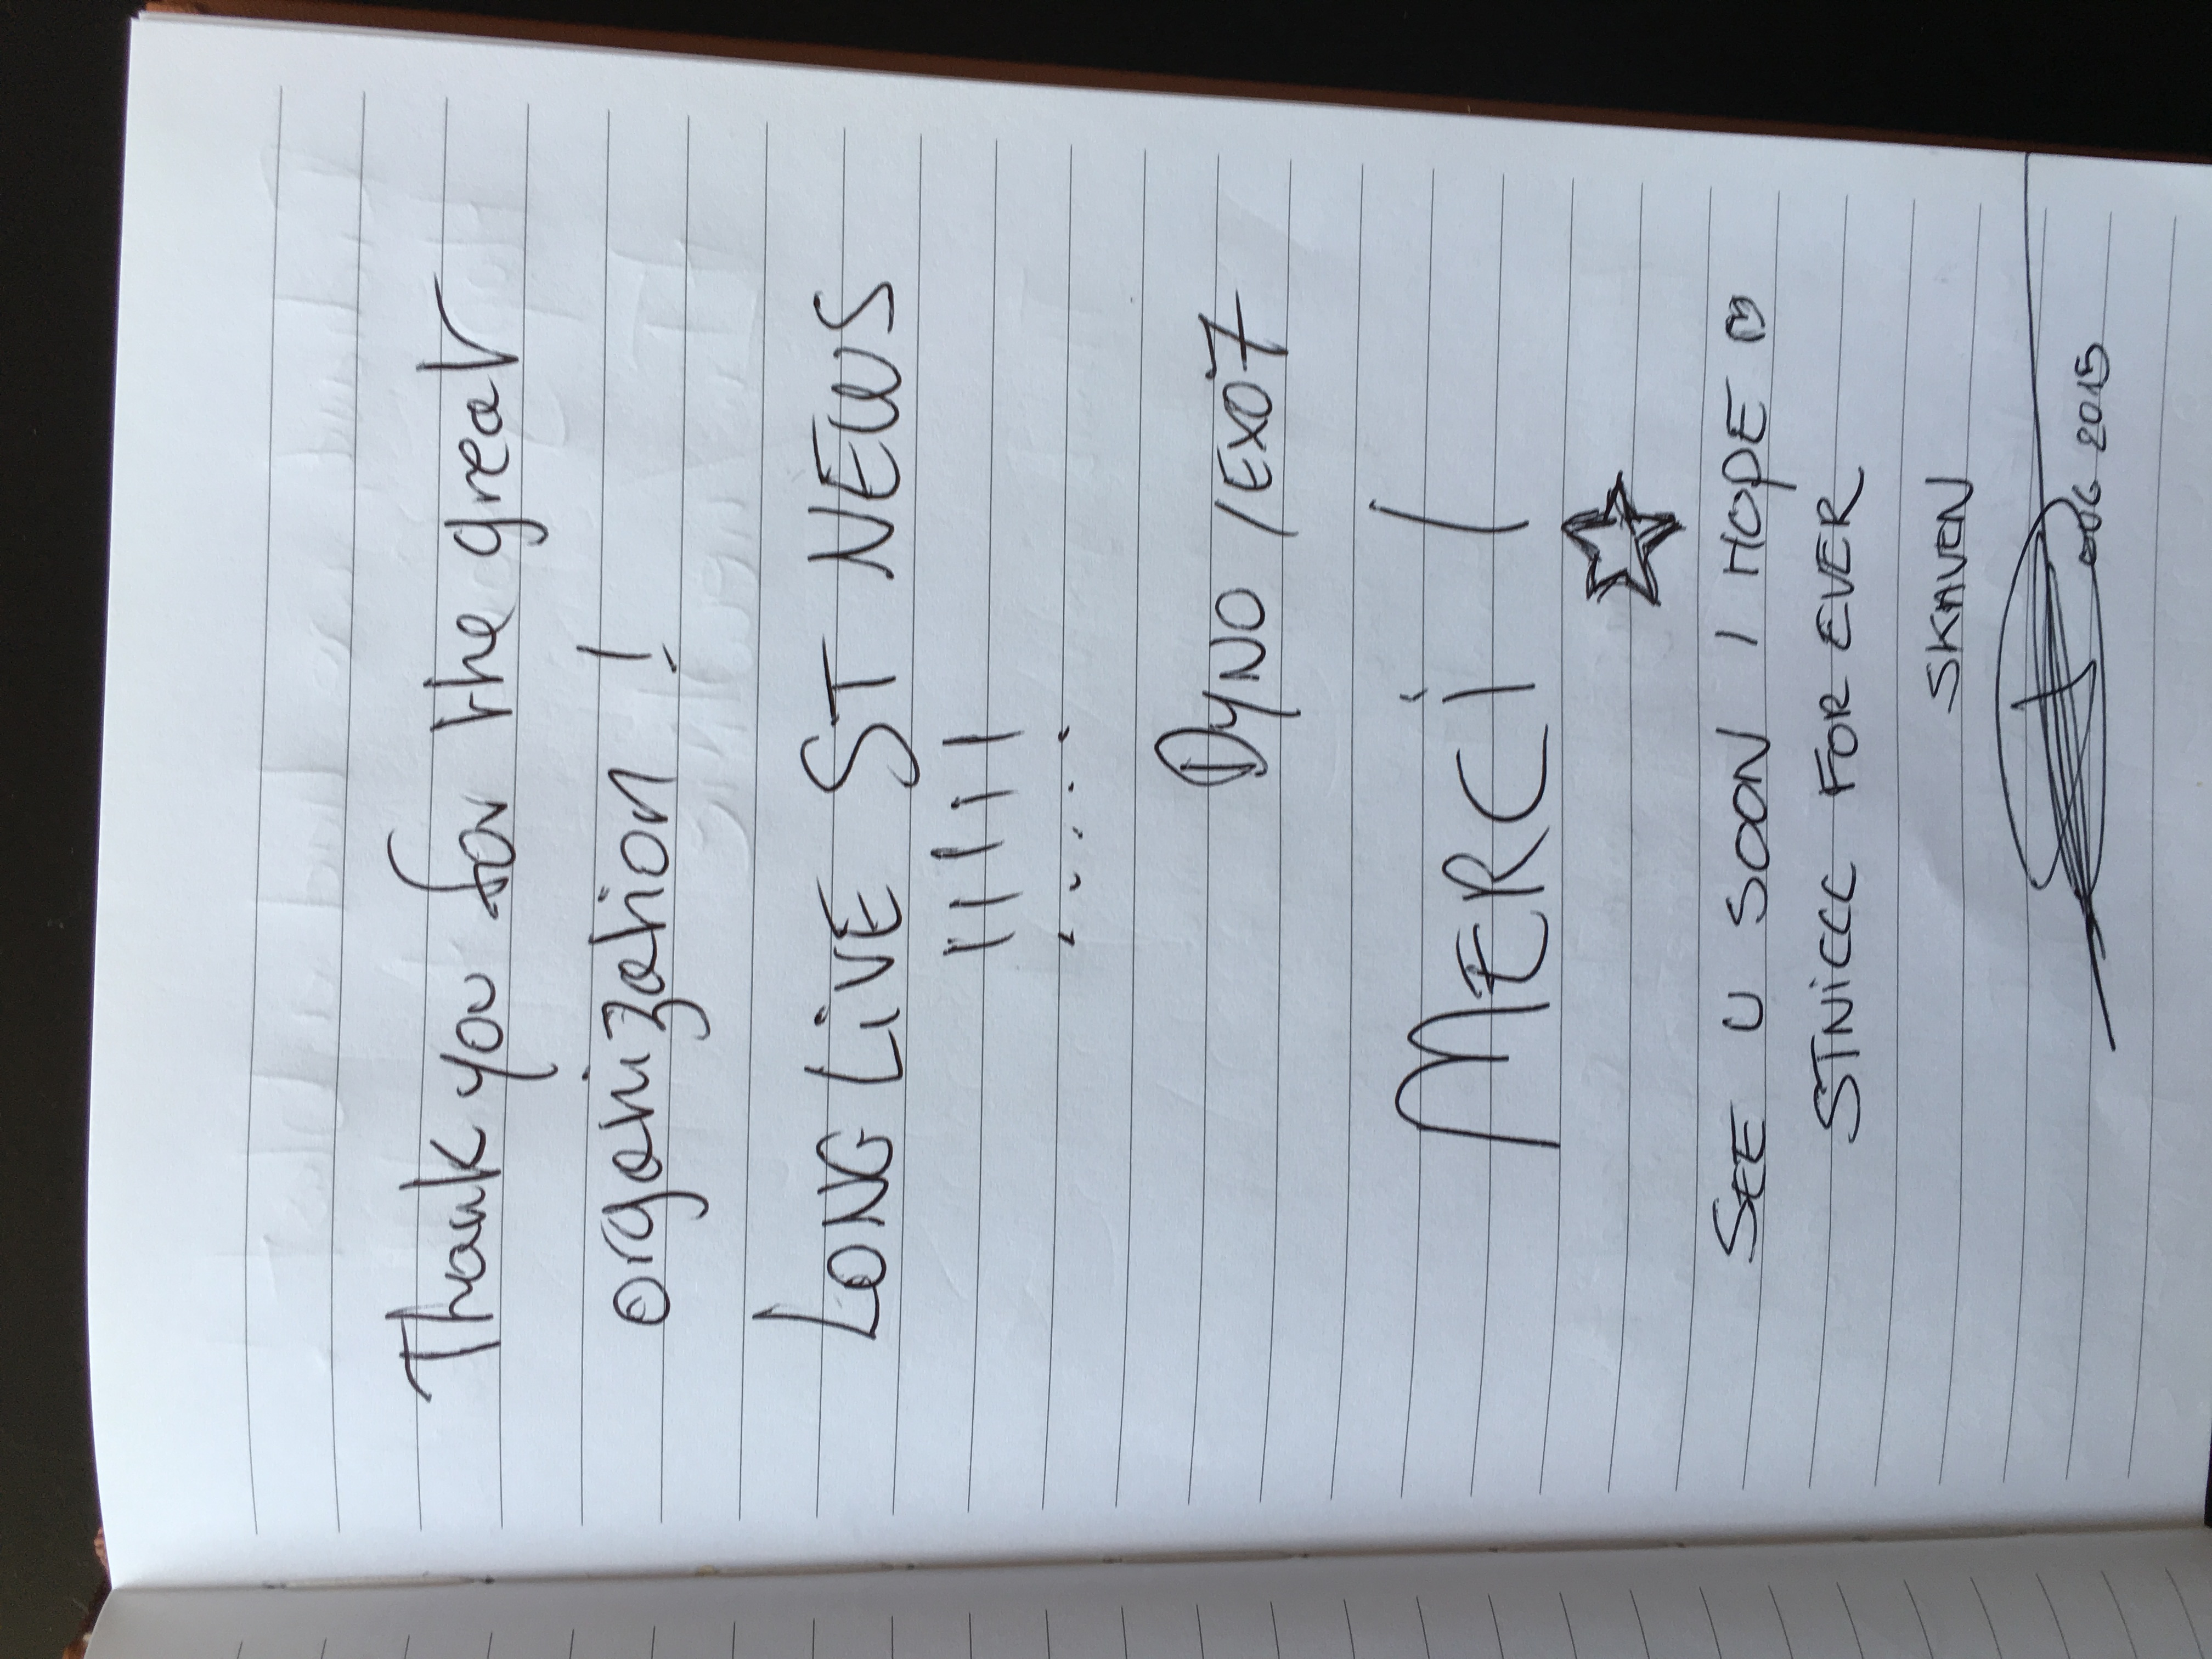 Thank you for the great
organization !
LONG LiVE ST NEWS
!!!!!
DyNO / EXO7
MERCi !
SEE U SOON I HOPE
STNiCCC FOR EVER
SKAVEN
2015